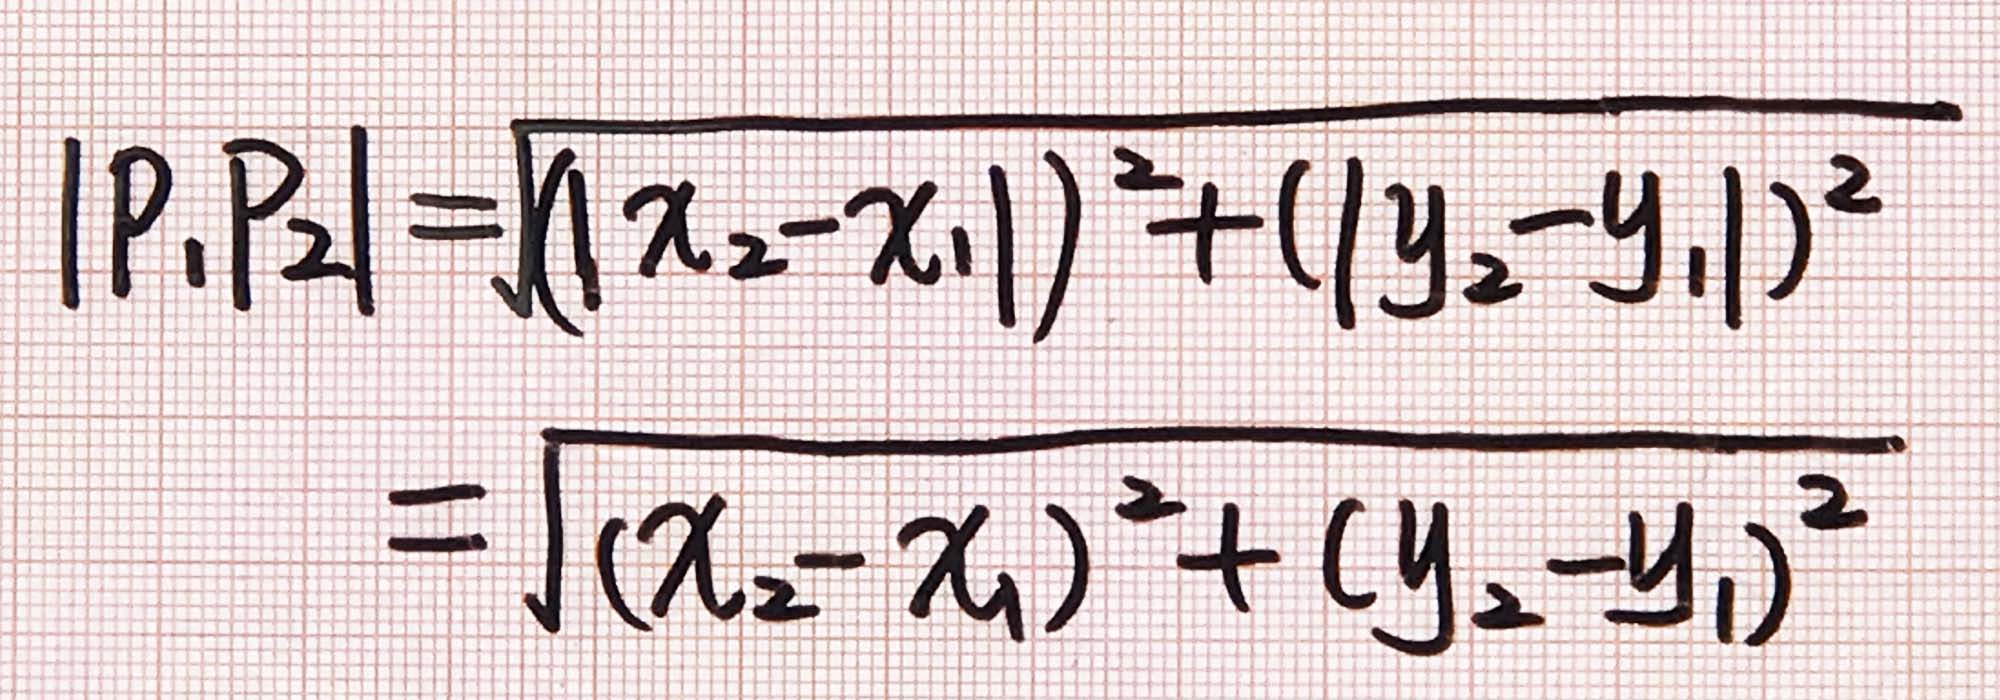 |P₁P₂| = √((|x₂-x₁|)²+(|y₂-y₁|)²)
= √((x₂-x₁)²+(y₂-y₁)²)